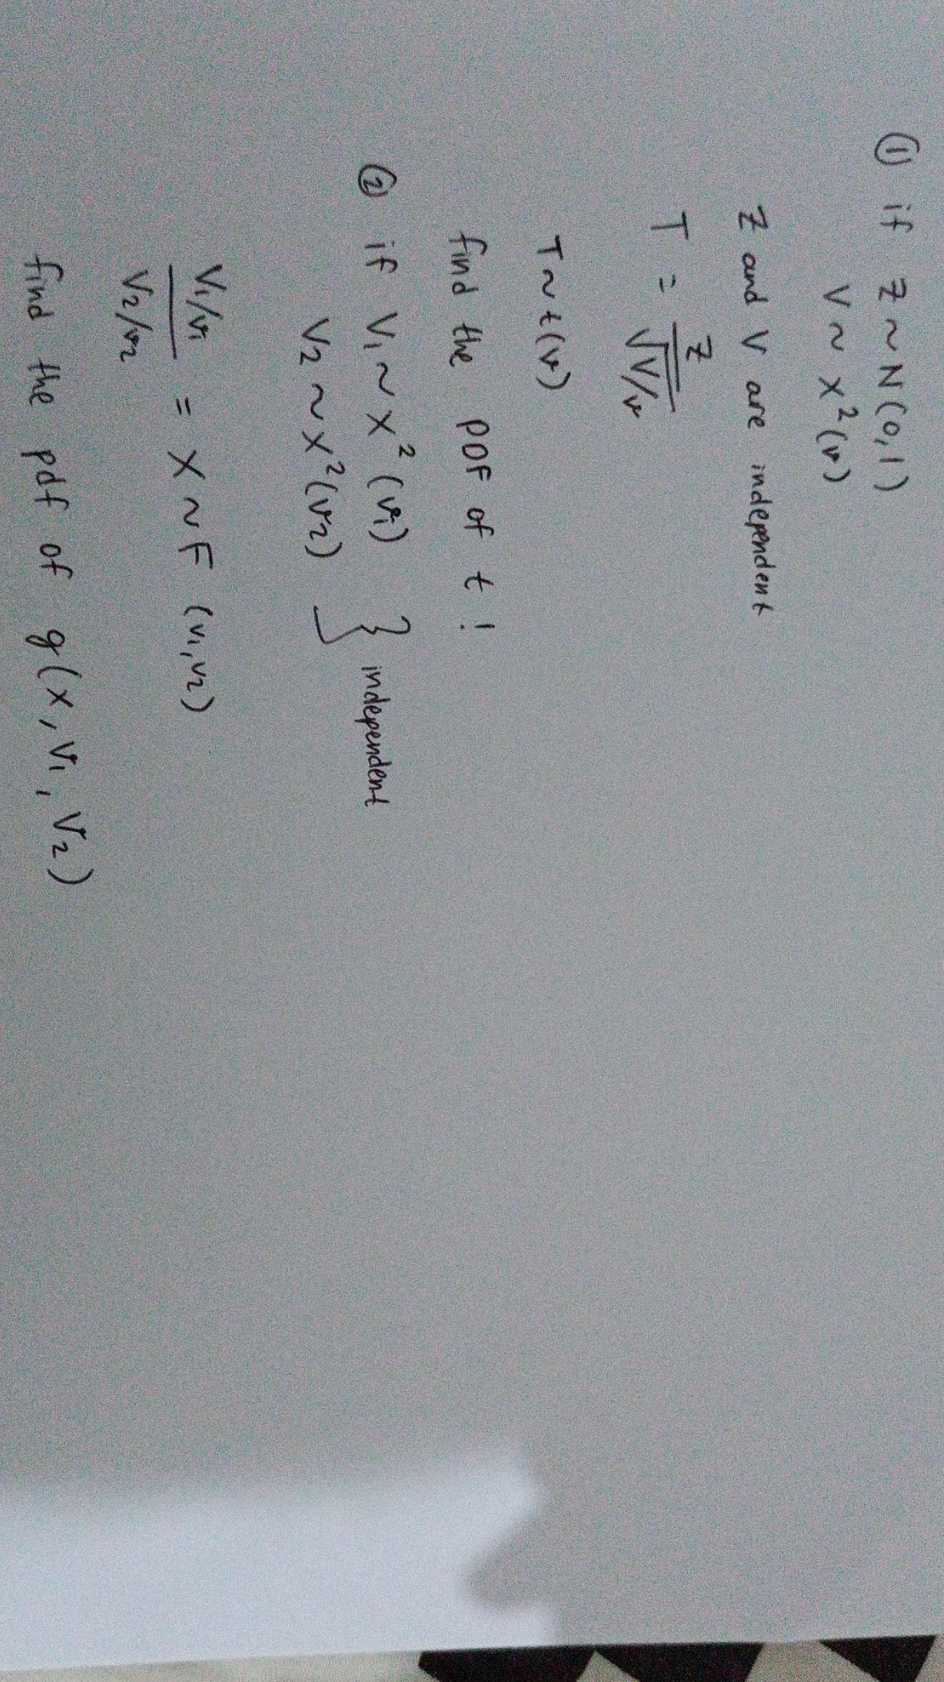 ① if Z ~ N(0,1)
V ~ X²(v)
Z and V are independent
T = Z/√V/v
T ~ t(v)
find the PDF of t !
② if V₁ ~ X²(v₁)
V₂ ~ X²(v₂) } independent
V₁/v₁ / V₂/v₂ = X ~ F (v₁,v₂)
find the pdf of g(x, v₁, v₂)